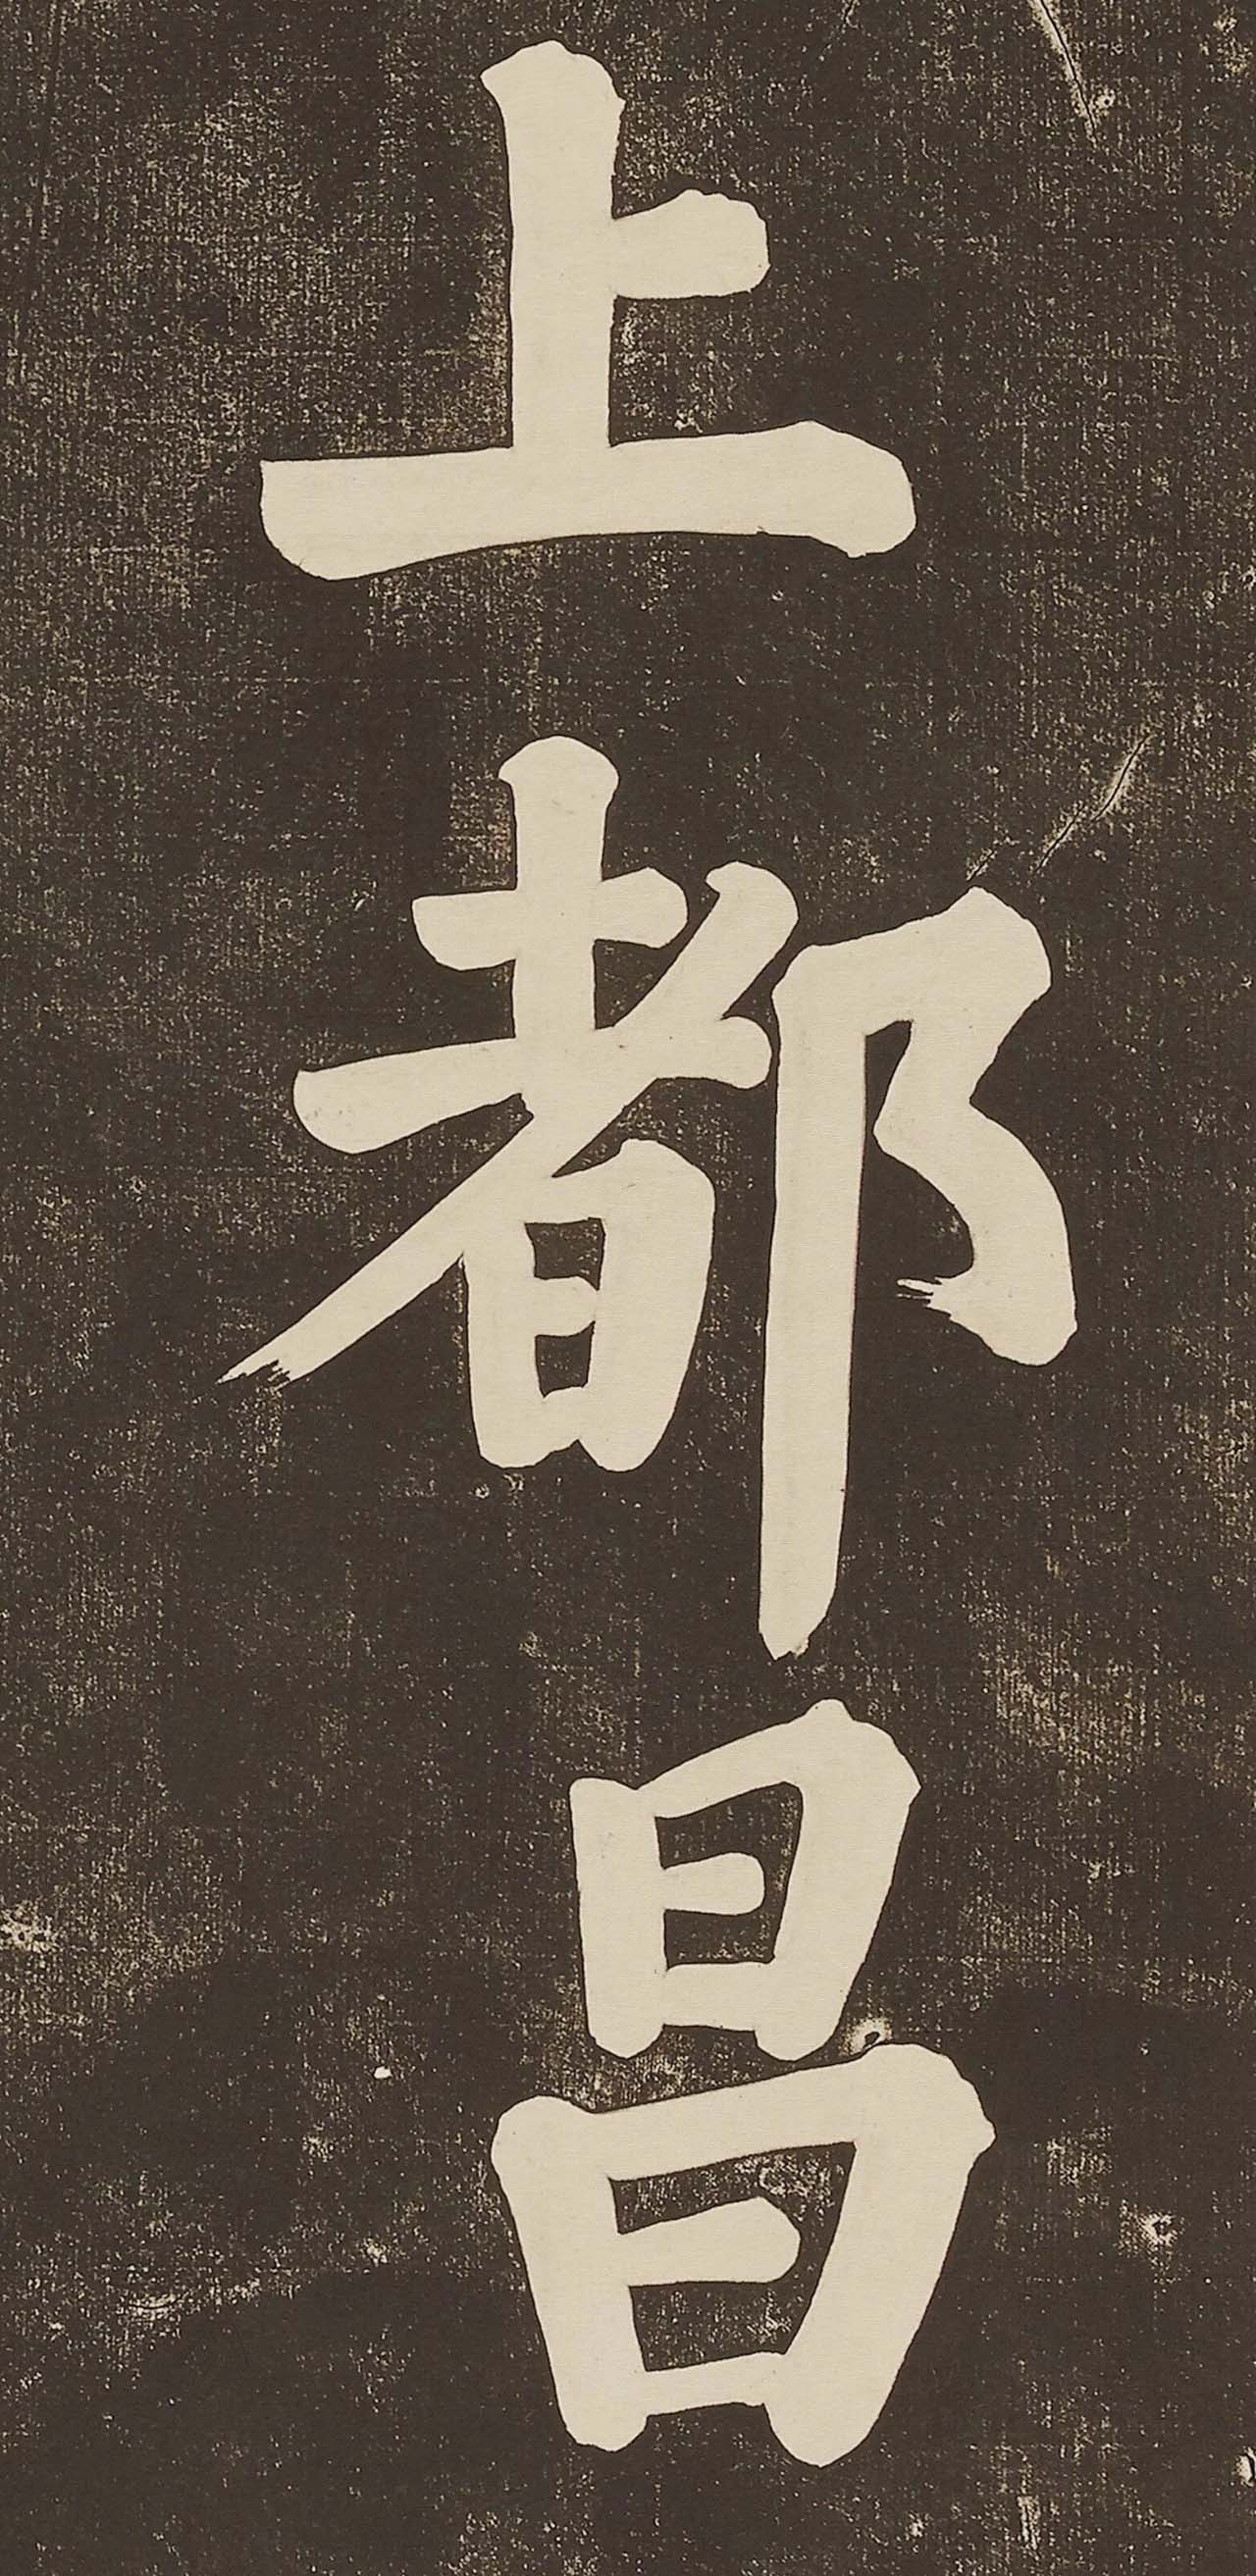 上都昌